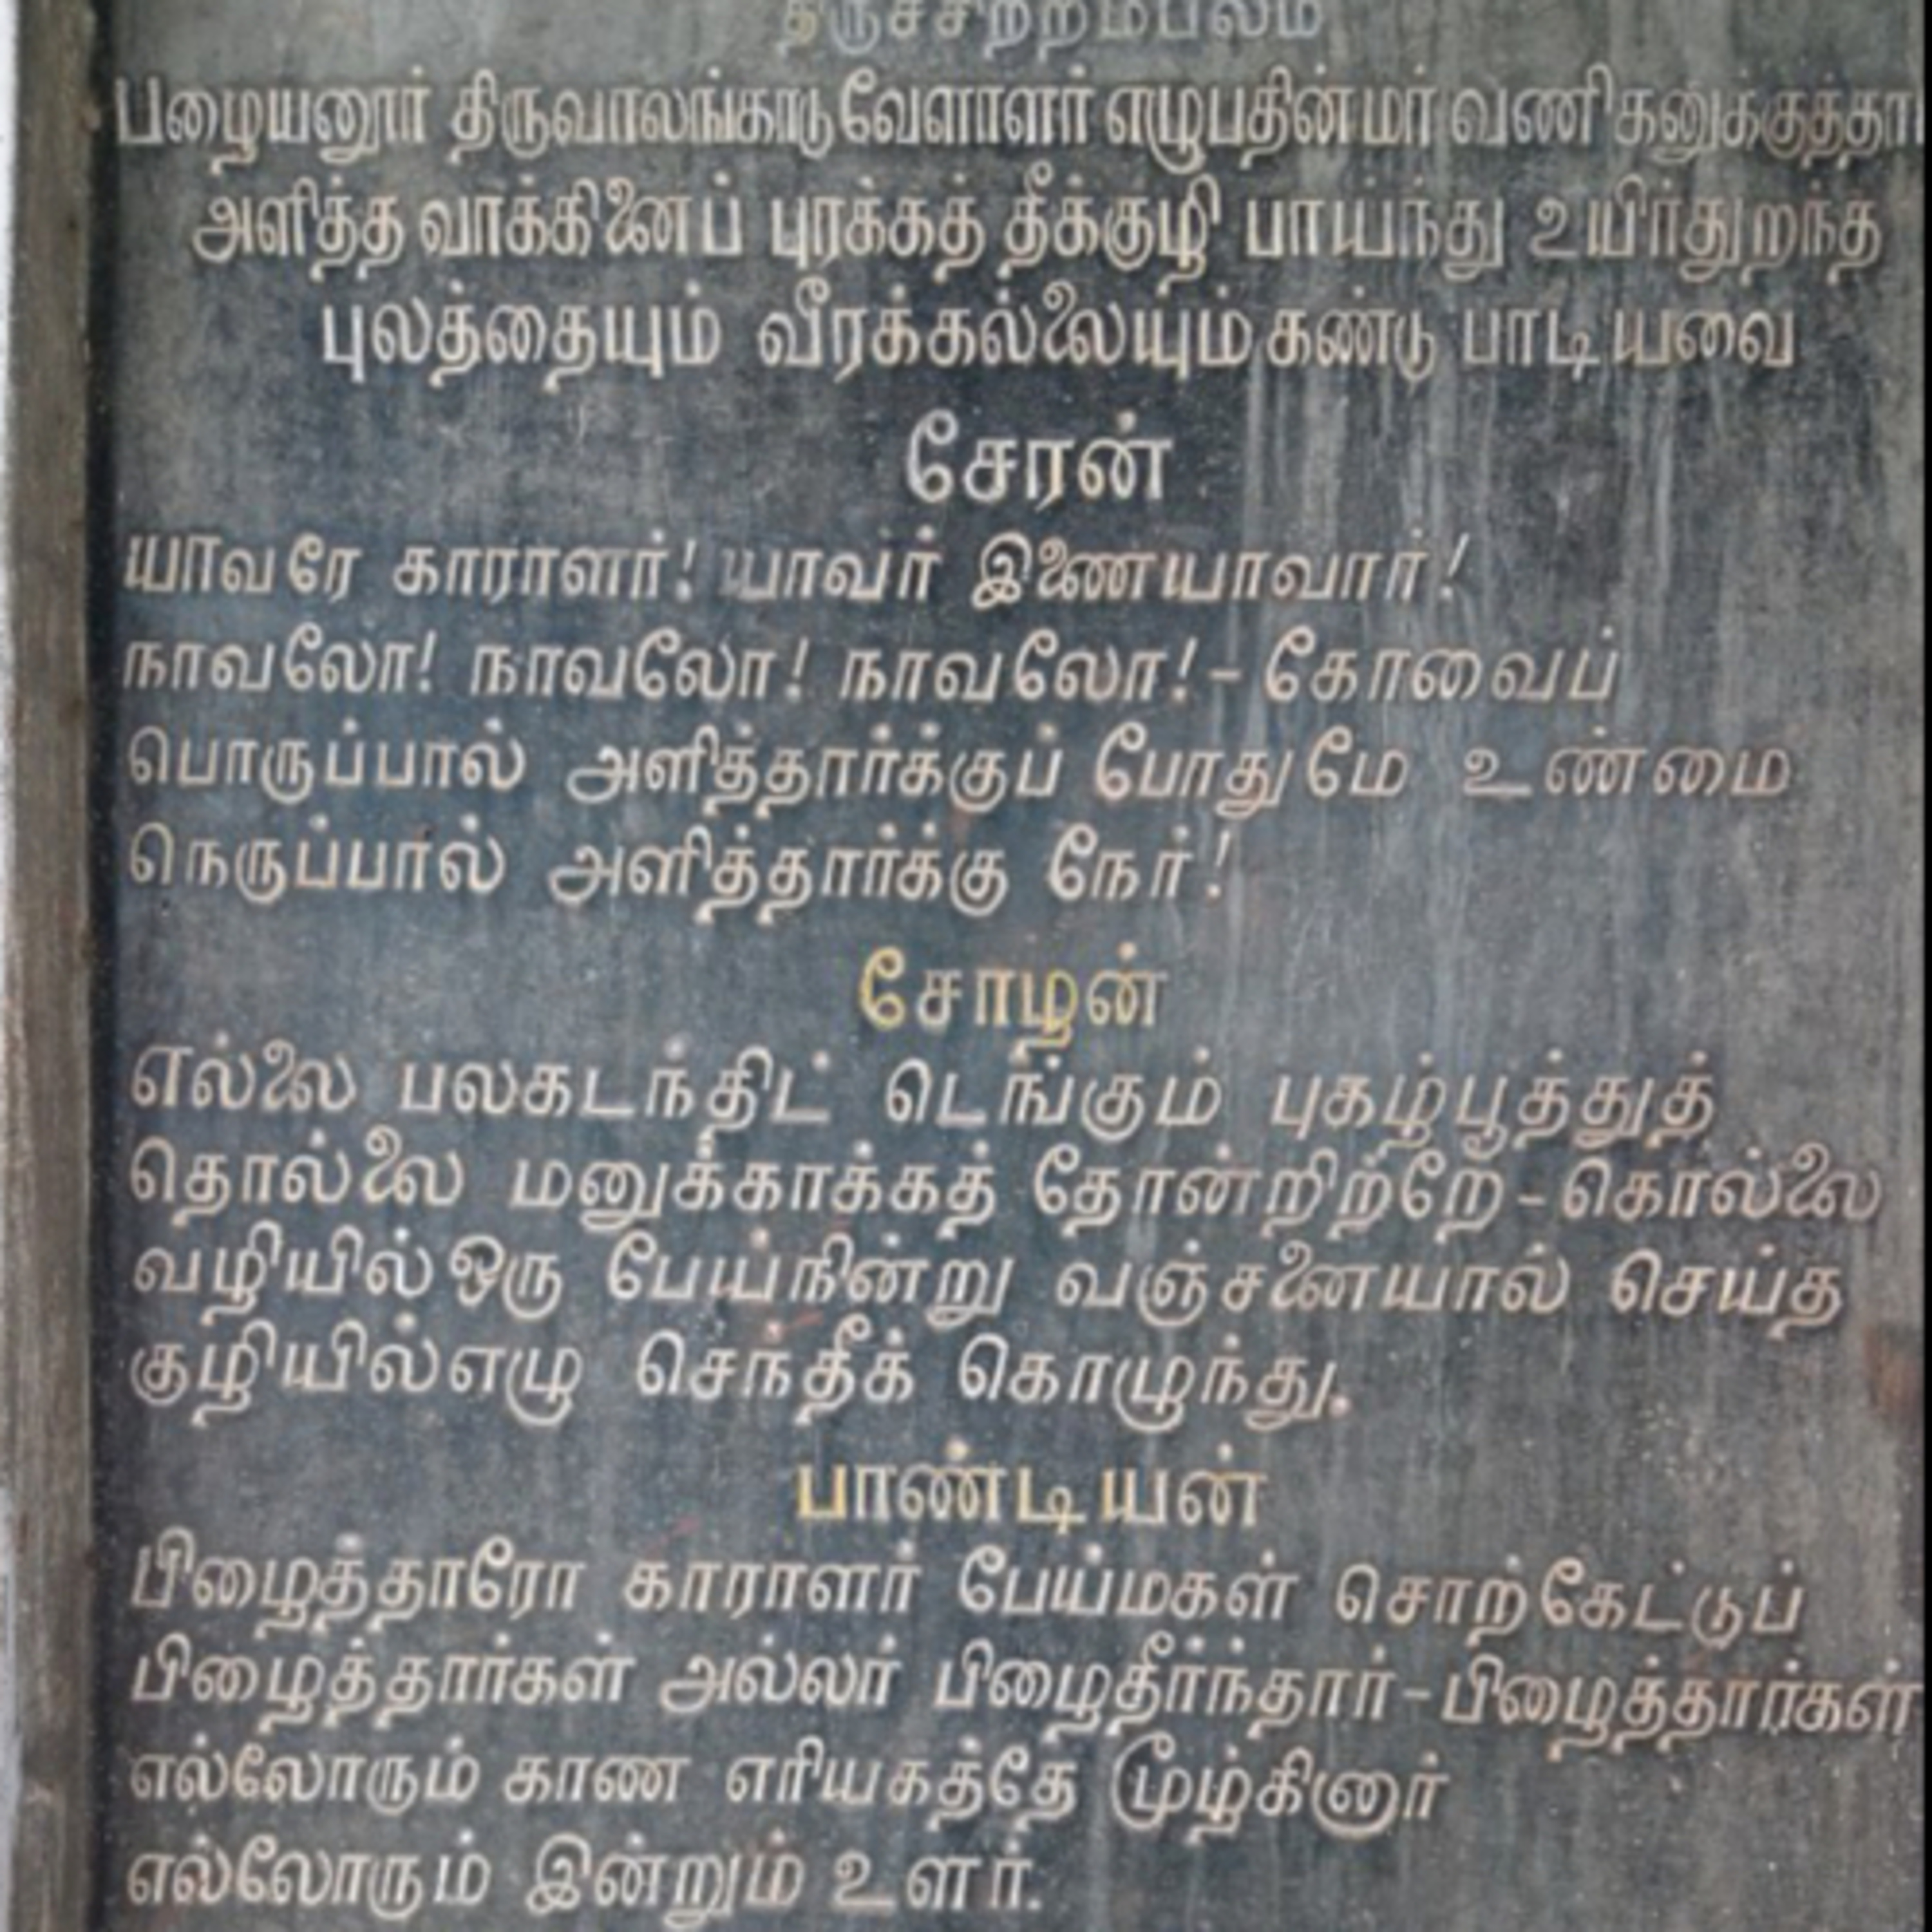 திருச்சிற்றம்பலம்
பழையனூர் திருவாலங்காடு வேளாளர் எழுபதின்மர் வணிகனுக்குத்தா
அளித்த வாக்கினைப் புரக்கத் தீக்குழி பாய்ந்து உயிர்துறந்த
புலத்தையும் வீரக்கல்லையும் கண்டு பாடியவை
சேரன்
யாவரே காராளர்! யாவர் இணையாவார்!
நாவலோ! நாவலோ! நாவலோ! - கோவைப்
பொருப்பால் அளித்தார்க்குப் போதுமே உண்மை
நெருப்பால் அளித்தார்க்கு நேர்!
சோழன்
எல்லை பலகடந்திட் டெங்கும் புகழ்பூத்துத்
தொல்லை மனுக்காக்கத் தோன்றிற்றே - கொல்லை
வழியில் ஒரு பேய்நின்று வஞ்சனையால் செய்த
குழியில்எழு செந்தீக் கொழுந்து.
பாண்டியன்
பிழைத்தாரோ காராளர் பேய்மகள் சொற்கேட்டுப்
பிழைத்தார்கள் அல்லர் பிழைதீர்ந்தார் - பிழைத்தார்கள்
எல்லோரும் காண எரியகத்தே மூழ்கினார்
எல்லோரும் இன்றும் உளர்.